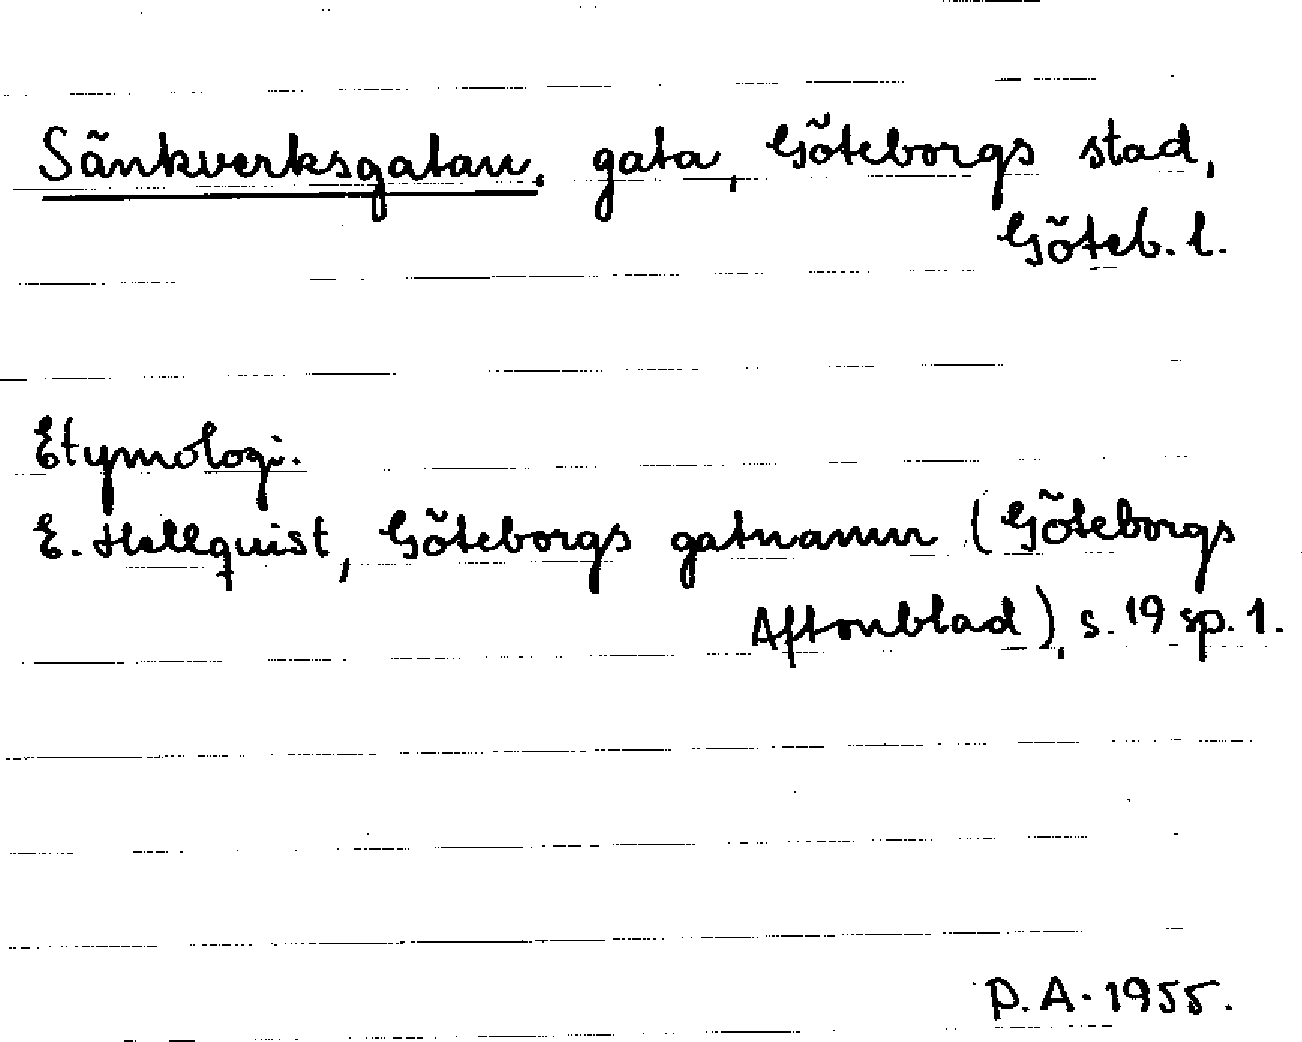 Sänkverksgatan, gata, Göteborgs stad,
Göteb. l.
Etymologi.
E. Hellquist, Göteborgs gatnamn (Göteborgs
Aftonblad), s. 19 sp. 1.
P. A. 1955.